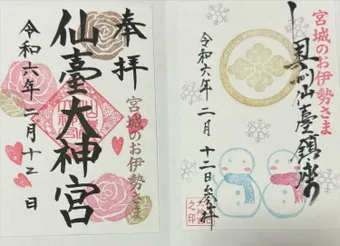 奉拝
宮城のお伊勢さま
仙臺大神宮
令和六年二月十二日
宮城のお伊勢さま
仙臺
令和六年二月十二日参拝
之印